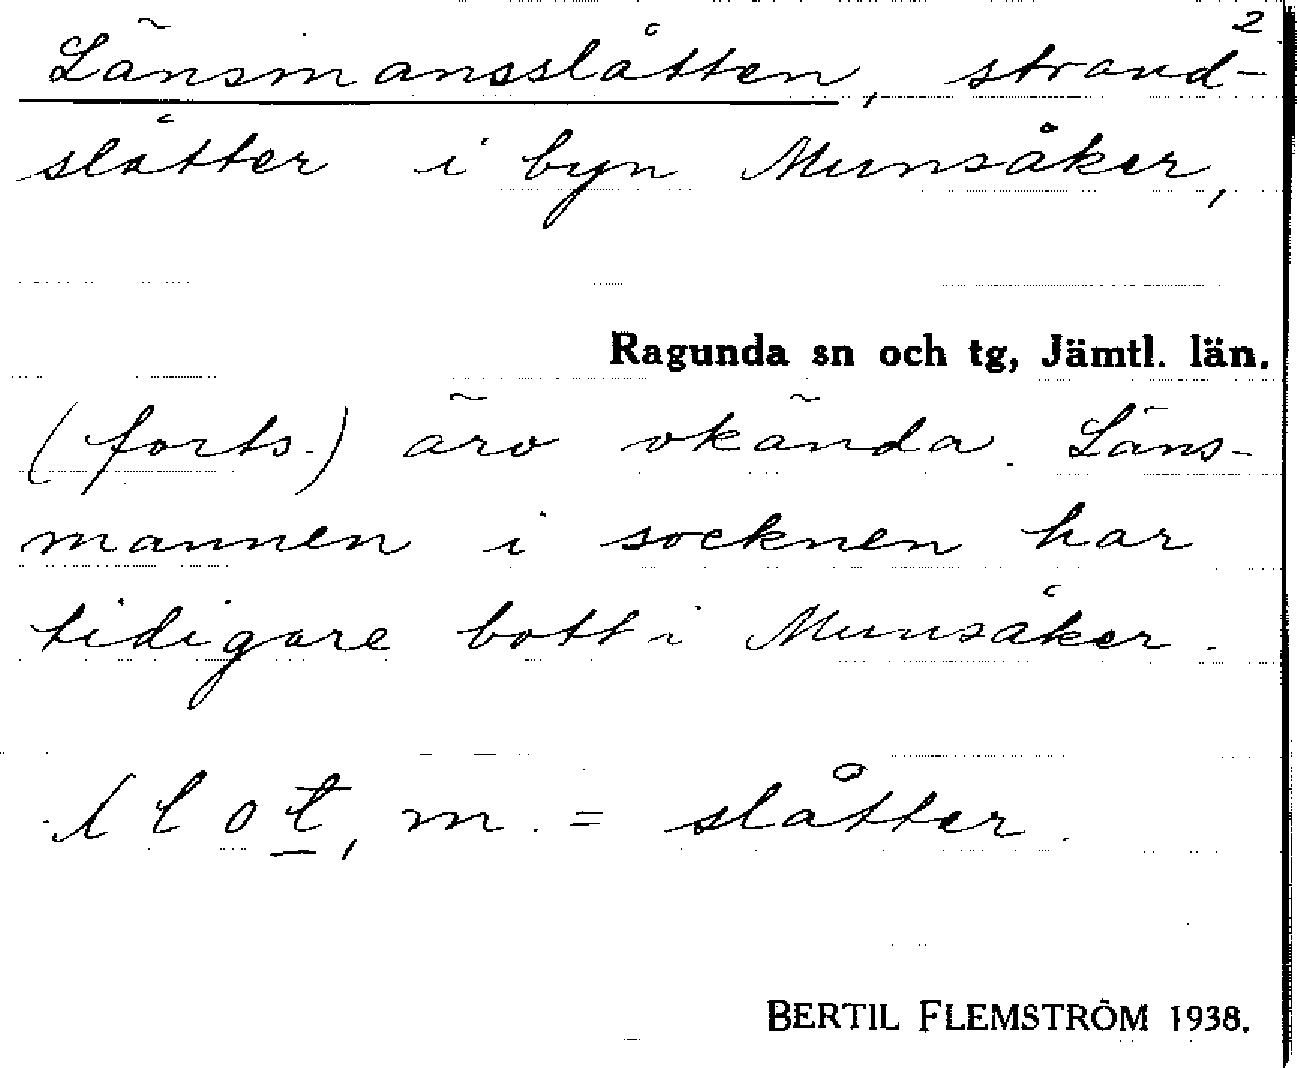 2
Länsmansslåtten, strand-
slåtter i byn Munsåker,
Ragunda sn och tg, Jämtl. län.
(forts.) äro okända. Läns-
mannen i socknen har
tidigare bott i Munsåker.
m. = slåtter.
BERTIL FLEMSTRÖM 1938.